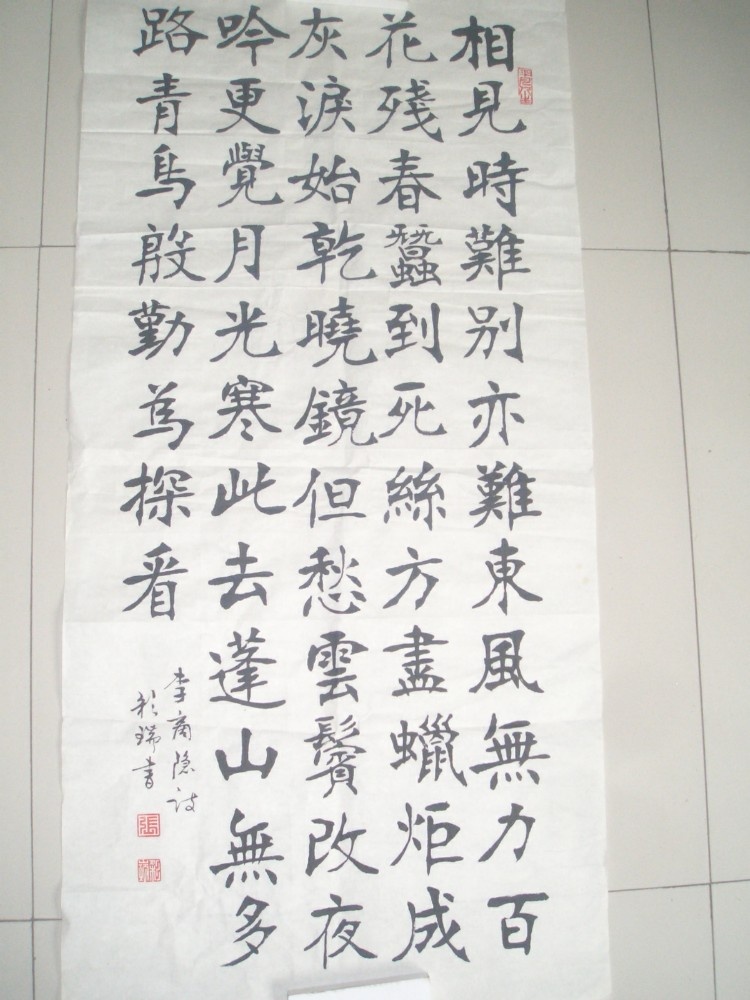 相見時難别亦難東風無力百
花残春蠶到死絲方盡蠟炬成
灰淚始乾曉鏡但愁雲鬢改夜
吟更覺月光寒此去蓬山無多
路青鳥殷勤為探看
李商隐詩
彩瑞書
張